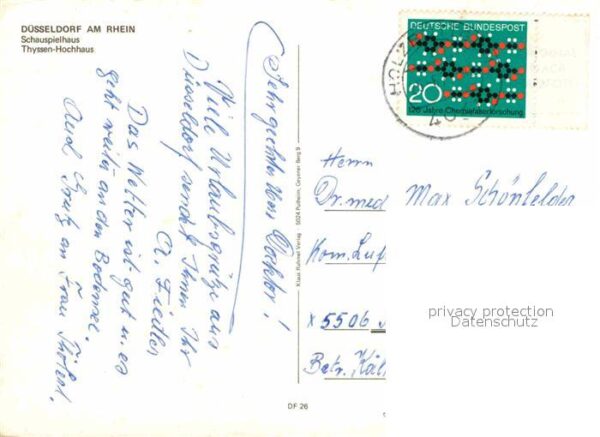 DÜSSELDORF AM RHEIN
Schauspielhaus
Thyssen-Hochhaus
Sehr geehrter Herr Doktor!
Viele Urlaubsgrüße aus
Düsseldorf sendet Ihnen Ihr
Das Wetter ist gut u. es
geht weiter an den Bodensee.
Auch Grüße an Frau
Klaus Ruhmel Verlag 5024 Pulheim, Geyener Berg 9
DF 26
DEUTSCHE BUNDESPOST
20
125 Jahre Chemiefaserforschung
HOLZ
Herrn
Dr. med Max Schönfelder
Kom.
x 5506
Betr.
privacy protection
Datenschutz